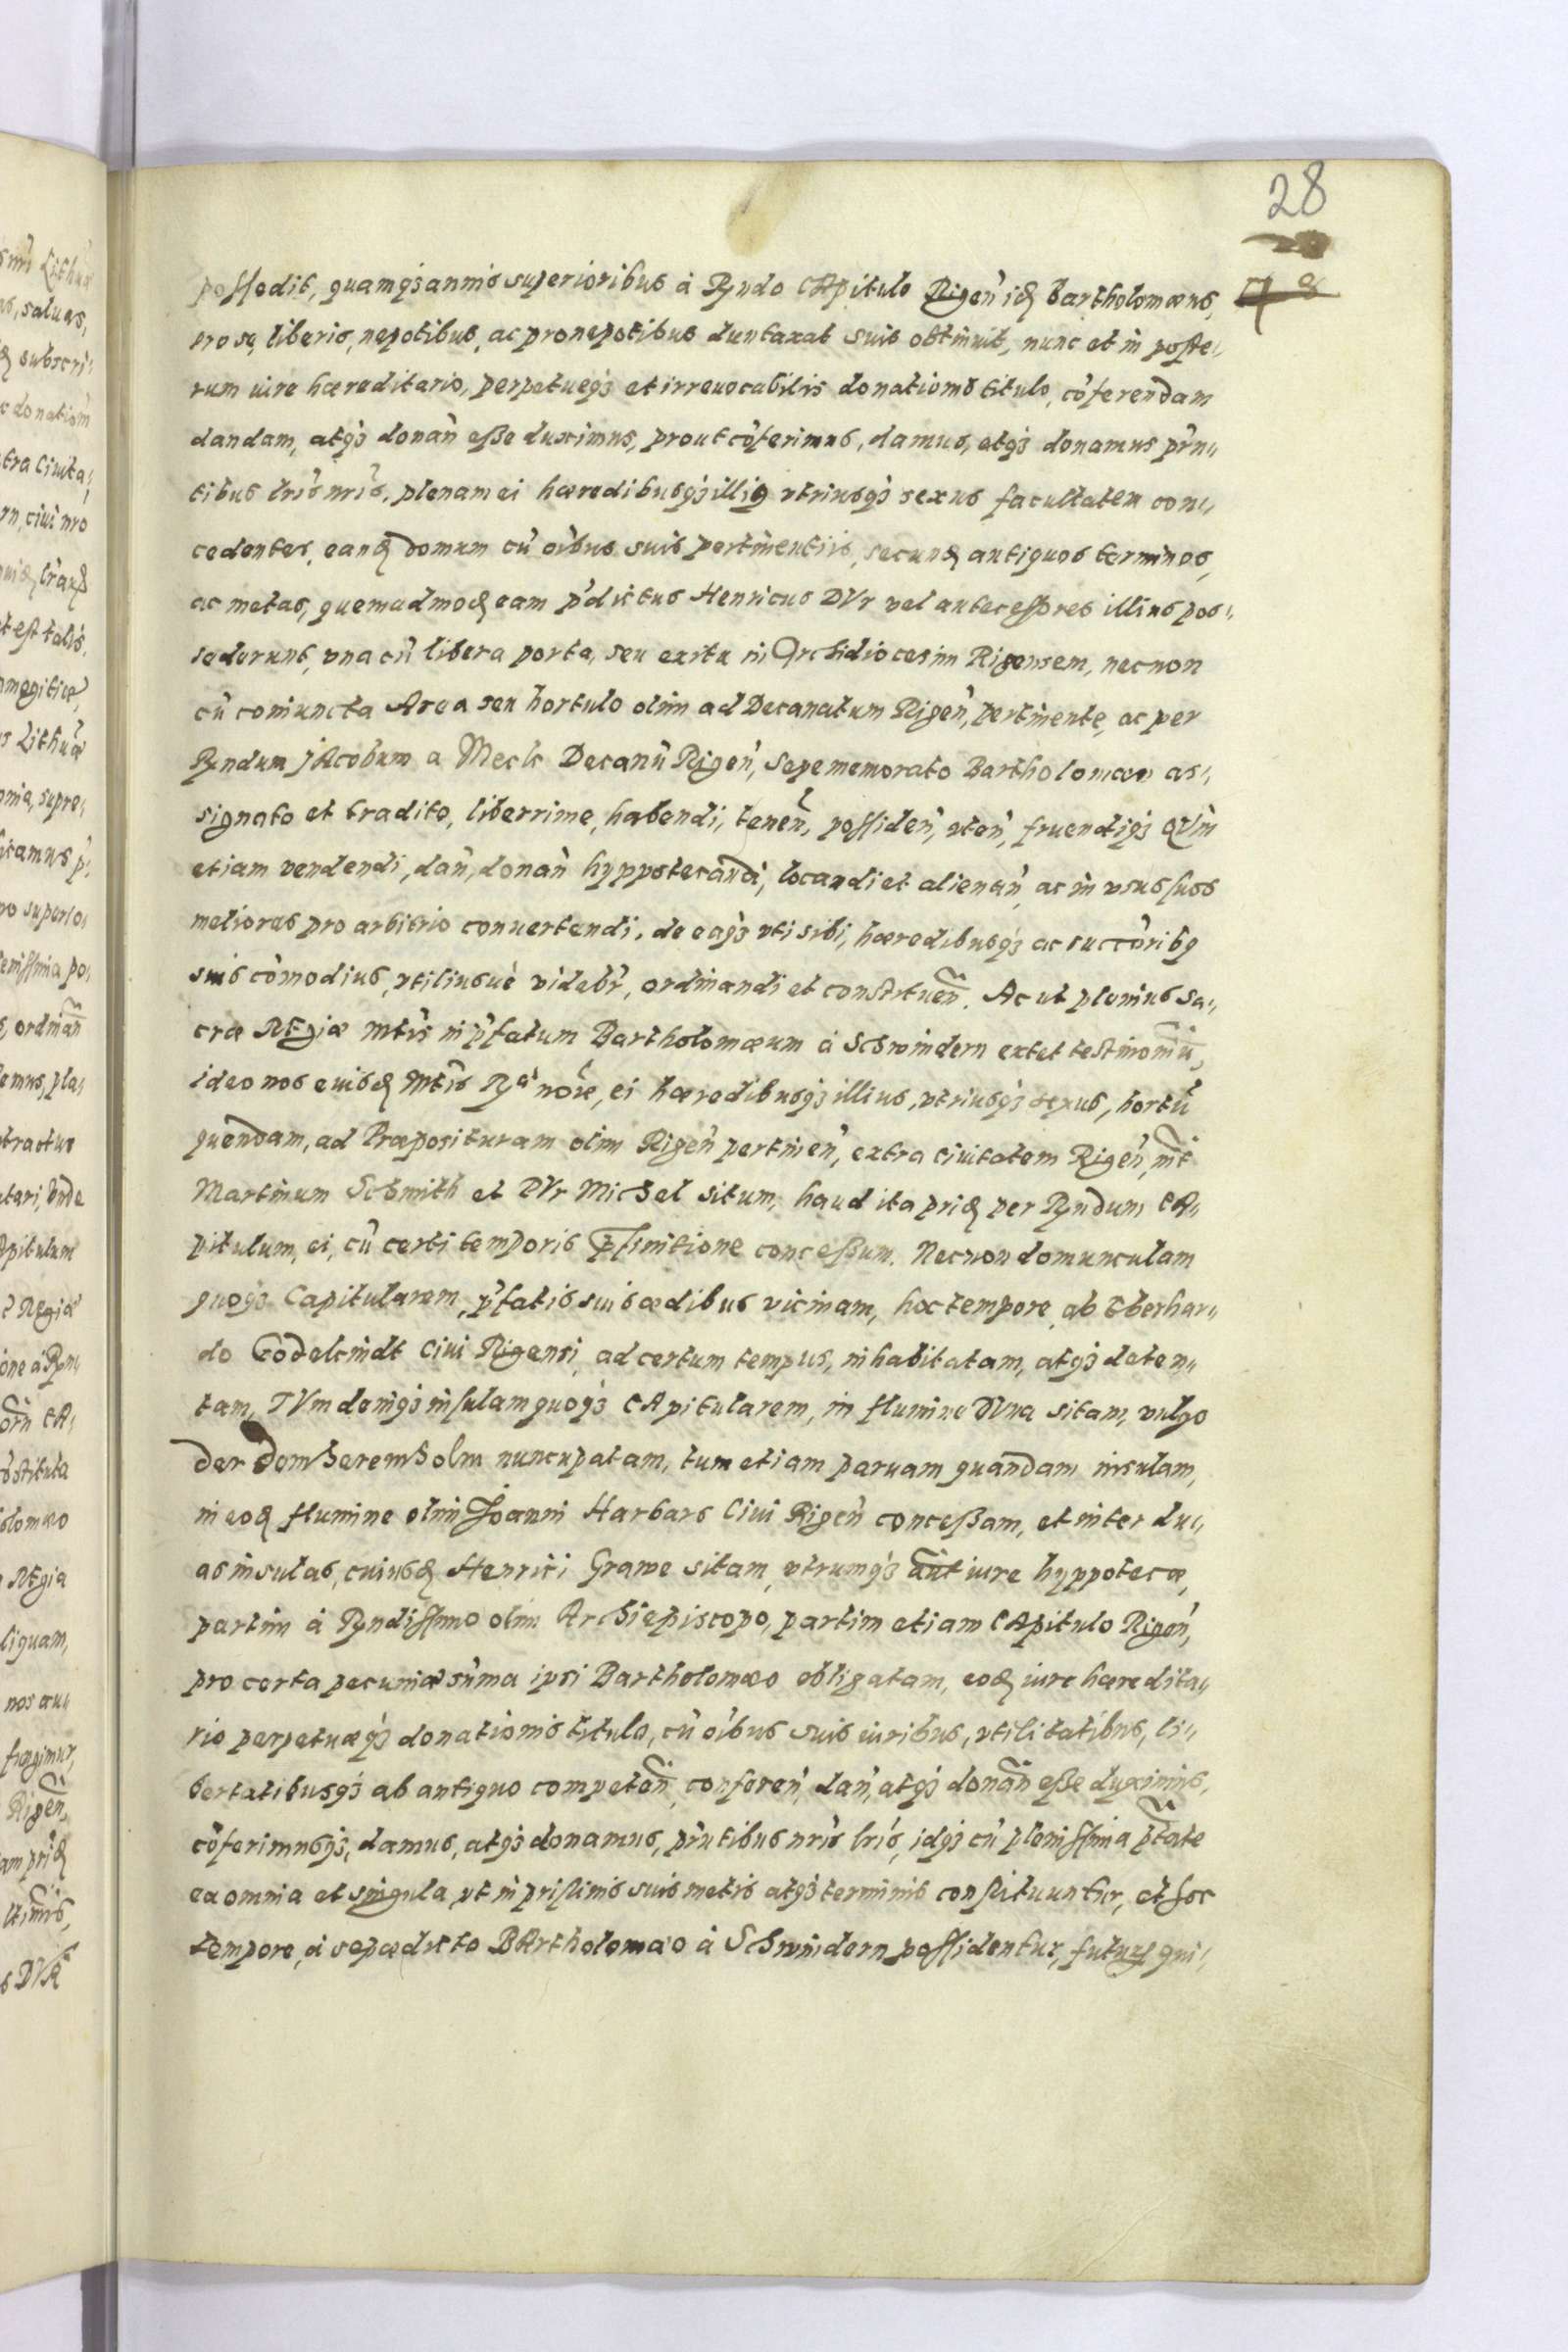 28
possedit, quamq́ʒ annis superioribus à Rndo CApitulo Rigeǹ idẽ Bartholomæus,
pro se, liberis, nepotibus, ac pronepotibus duntaxat suis obtinuit, nunc et in poste„
rum iure hæreditario, perpetueq́ʒ et irreuocabilis donationis titulo, cõferendam
dandam, atq́ʒ donañ esse duximus, prout cõferimus, damus, atq́ʒ donamus pr̃n„
tibus lr̃is nr̃is, plenam ei hæredibusq́ʒ illiꝰ vtriusq́ʒ sexus facultatem con„
cedentes, eandẽ domum cũ oĩbus suis pertinentiis, secundũ antiquos terminos,
ac metas, quemadmodũ eam p̃dictus Henricus DVr vel antecessores illius pos„
sederunt, vna cũ libera porta, seu exitu in Archidiocesim Rigensem, necnon
cũ coniuncta Area seu hortulo olim ad Decanatum Rigeñ, pertinente, ac per
Rndum JAcobum a Meck Decanũ Rigeñ, sæpememorato Bartholomæo as„
signato et tradito, liberrime, habendi, teneñ, possideñ, vteñ, fruendiq́ʒ QVin
etiam vendendi, dañ, donañ hyppotecandi, locandi et alienañ, ac in vsus suos
meliores pro arbitrio conuertendi, de eaq́ʒ vti sibi, hæredibusq́ʒ ac succ̃oribꝰ
suis cõmodius, vtiliusuè videbr̃, ordinandi et constitueñ. Ac ut plenius Sa„
cræ REgiæ Mtis in p̃fatum Bartholomæum à Schwindern extet testimoniũ,
ideo nos euisdẽ Mtis Rꝫ noĩe, ei hæredibusq́ʒ illius, vtriusq́ʒ sexus, hortũ
quendam, ad Præposituram olim Rigeñ pertineñ, extra ciuitatem Rigeñ, int̃
Martinum Schmith et DVr Michel situm, haud ita pridẽ per Rndum CA„
pitulum, ei, cũ certi temporis p̃finitione concessum. Necnon domunculam
quoq́ʒ Capitularem, p̃fatis suis ædibus vicinam, hoc tempore ab Eberhar„
do Godelcindt Ciui Rigensi, ad certum tempus, inhabitatam, atq́ʒ deten„
tam, TVm deniq́ʒ insulam quoq́ʒ CApitularem, in flumine DVna sitam, vulgo
der Domheremholm nuncupatam, tum etiam paruam quandam insulam,
in eodẽ flumine olim Joanni Harbars Ciui Rigeñ concessam, et inter du„
as insulas, cuiusdẽ Henrici Grawe sitam, vtrumq́ʒ añt iure hyppotecæ,
partim à Rndissimo olim Archiepiscopo, partim etiam CApitulo Rigeñ,
pro certa pecuniæ sũma ipsi Bartholomæo obligatam, eodẽ iure hæredita„
rio perpetuæq́ʒ donationis titulo, cũ oĩbus suis iuribus, vtilitatibus, li„
bertatibusq́ʒ ab antiquo competeñ, confereñ, dañ, atq́ʒ donañ esse duximus,
cõferimusq́ʒ, damus, atq́ʒ donamus, pr̃ntibus nr̃is lr̃is, idq́ʒ cũ plenissima ptãte
ea omnia et singula, vt in pristinis suis metis atq́ʒ terminis constituuntur, et hoc
tempore, à sæpædicto BArtholomæo à Schwindern possidentur, futurꝭ qui„